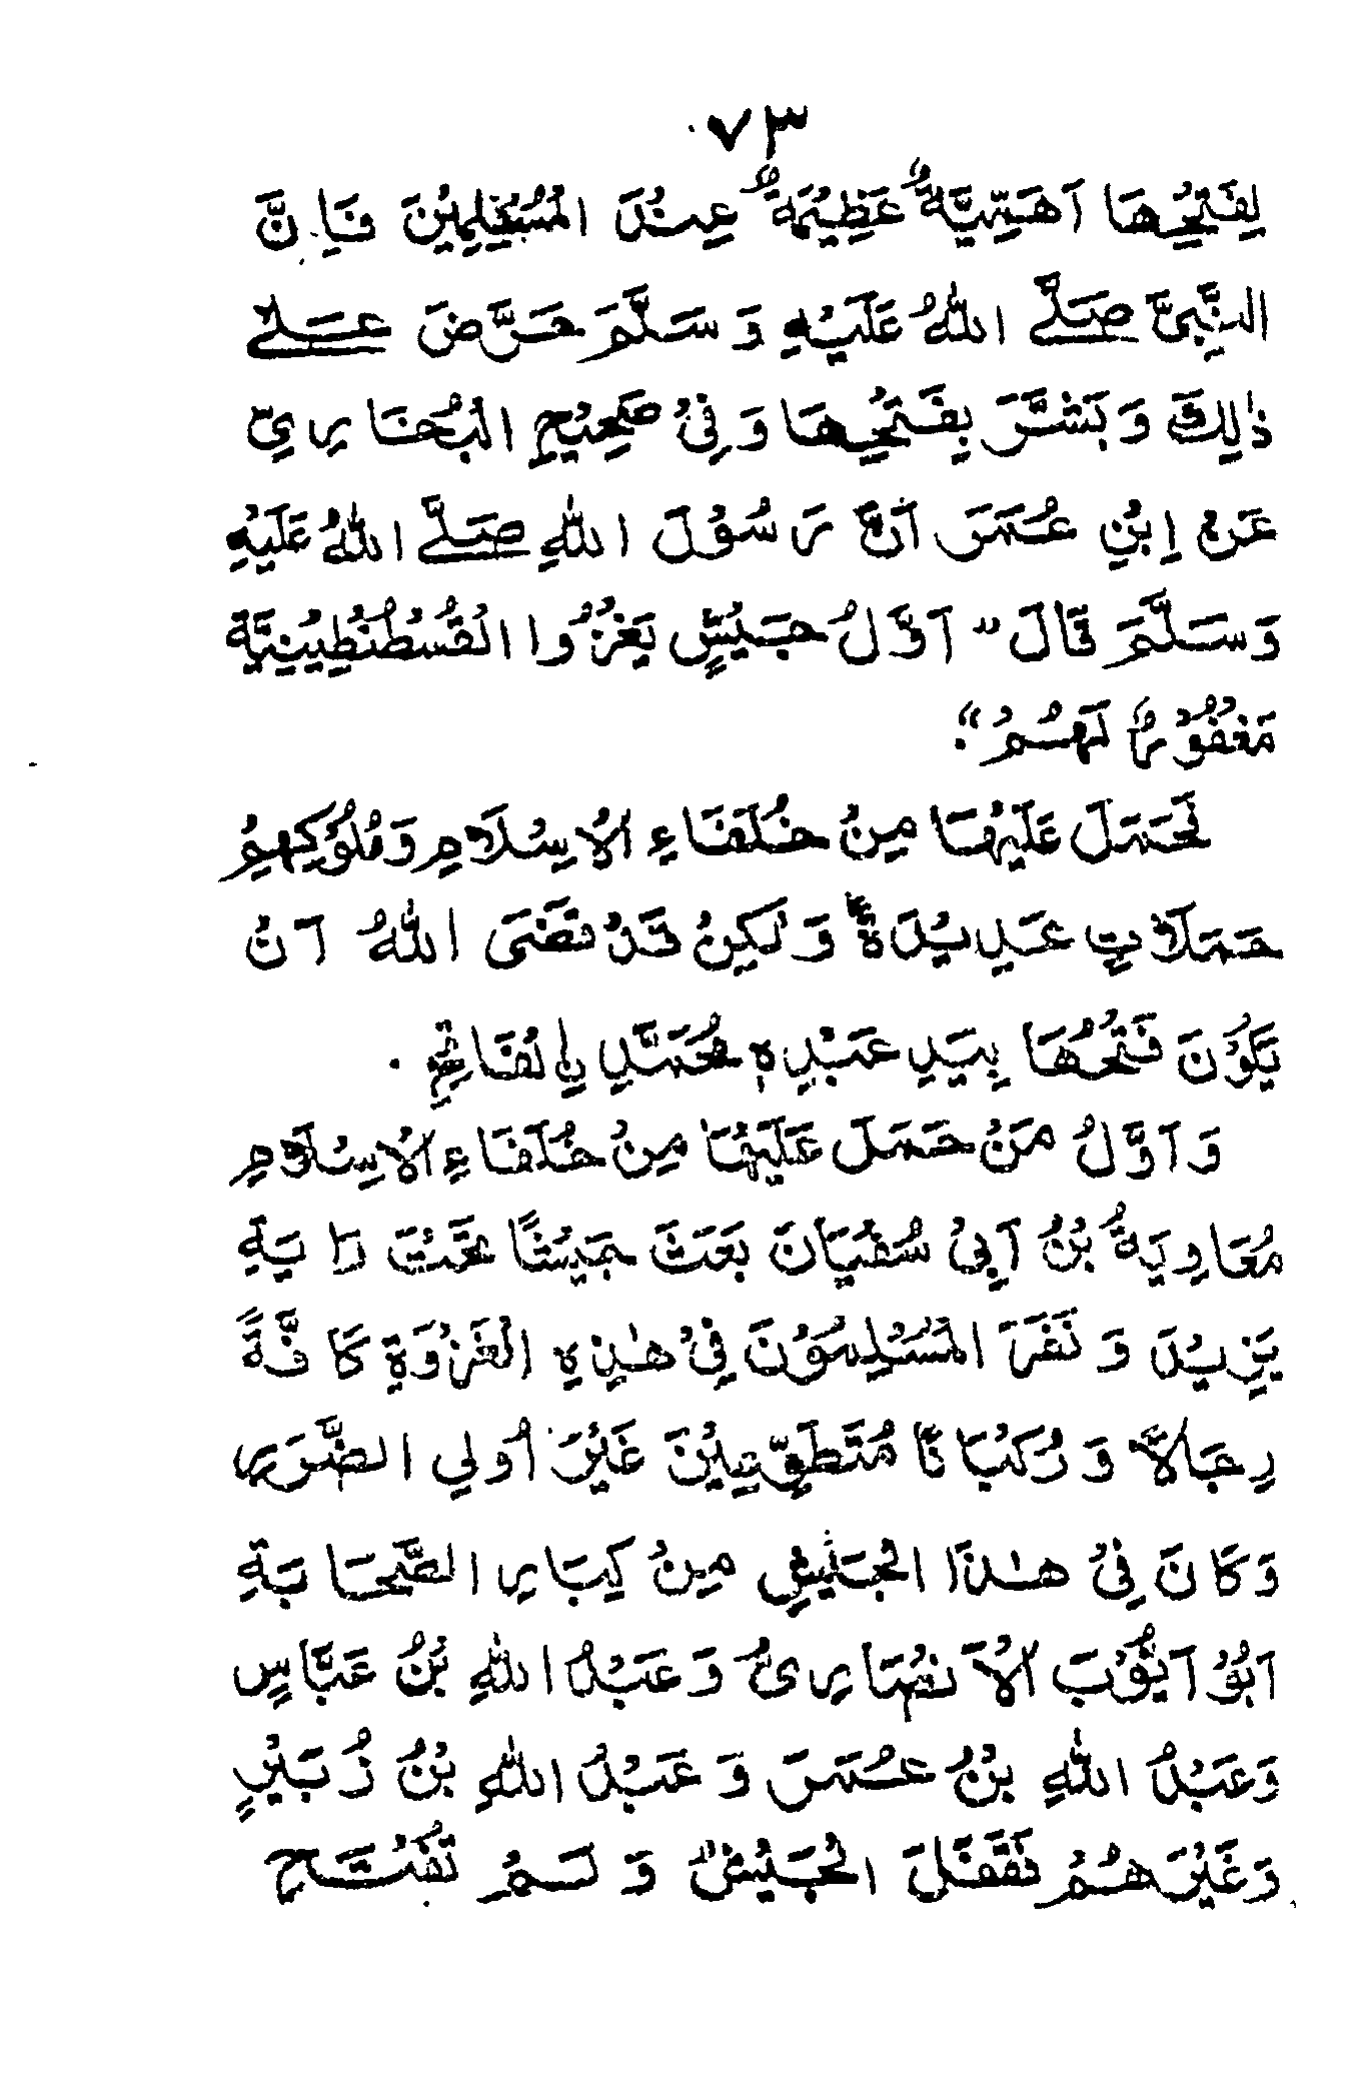 ٧٣
لِفَتْحِهَا اَهَمِّيَّةٌ عَظِيْمَةٌ عِنْدَ الْمُسْلِمِيْنَ فَاِنَّ
النَّبِيَّ صَلَّے اللّٰهُ عَلَيْهِ وَسَلَّمَ حَرَّضَ عَلٰے
ذٰلِكَ وَبَشَّرَ بِفَتْحِهَا وَفِیْ صَحِيْحِ الْبُخَارِيِّ
عَنْ اِبْنِ عُمَرَ اَنَّ رَسُوْلَ اللّٰهِ صَلَّے اللّٰهُ عَلَيْهِ
وَسَلَّمَ قَالَ "اَوَّلُ جَيْشٍ يَغْزُوا الْقُسْطُنْطِيْنِيَّةَ
مَغْفُوْرٌ لَهُمْ".
فَحَمَلَ عَلَيْهَا مِنْ خُلَفَاءِ الْاِسْلَامِ وَمُلُوْكِهِمْ
حَمَلَاتٍ عَدِيْدَةً وَلٰكِنْ قَدْ قَضَى اللّٰهُ اَنْ
يَكُوْنَ فَتْحُهَا بِيَدِ عَبْدِهٖ مُحَمَّدِ الْفَاتِحِ.
وَ اَوَّلُ مَنْ حَمَلَ عَلَيْهَا مِنْ خُلَفَاءِ الْاِسْلَامِ
مُعَاوِيَةُ بْنُ اَبِیْ سُفْيَانَ بَعَثَ جَيْشًا تَحْتَ رَايَةِ
يَزِيْدَ وَ نَفَرَ الْمُسْلِمُوْنَ فِیْ هٰذِهِ الْغَزْوَةِ كَافَّةً
رِجَالًا وَ رُكْبَانًا مُتَطَوِّعِيْنَ غَيْرَ اُولِي الضَّرَرِ
وَكَانَ فِیْ هٰذَا الْجَيْشِ مِنْ كِبَارِ الصَّحَابَةِ
اَبُوْ اَيُّوْبَ الْاَنْصَارِیُّ وَعَبْدُ اللّٰهِ بْنُ عَبَّاسٍ
وَعَبْدُ اللّٰهِ بْنُ عُمَرَ وَ عَبْدُ اللّٰهِ بْنُ زُبَيْرٍ
وَغَيْرَهُمْ فَقَفَلَ الْجَيْشُ وَ لَمْ تُفْتَحْ